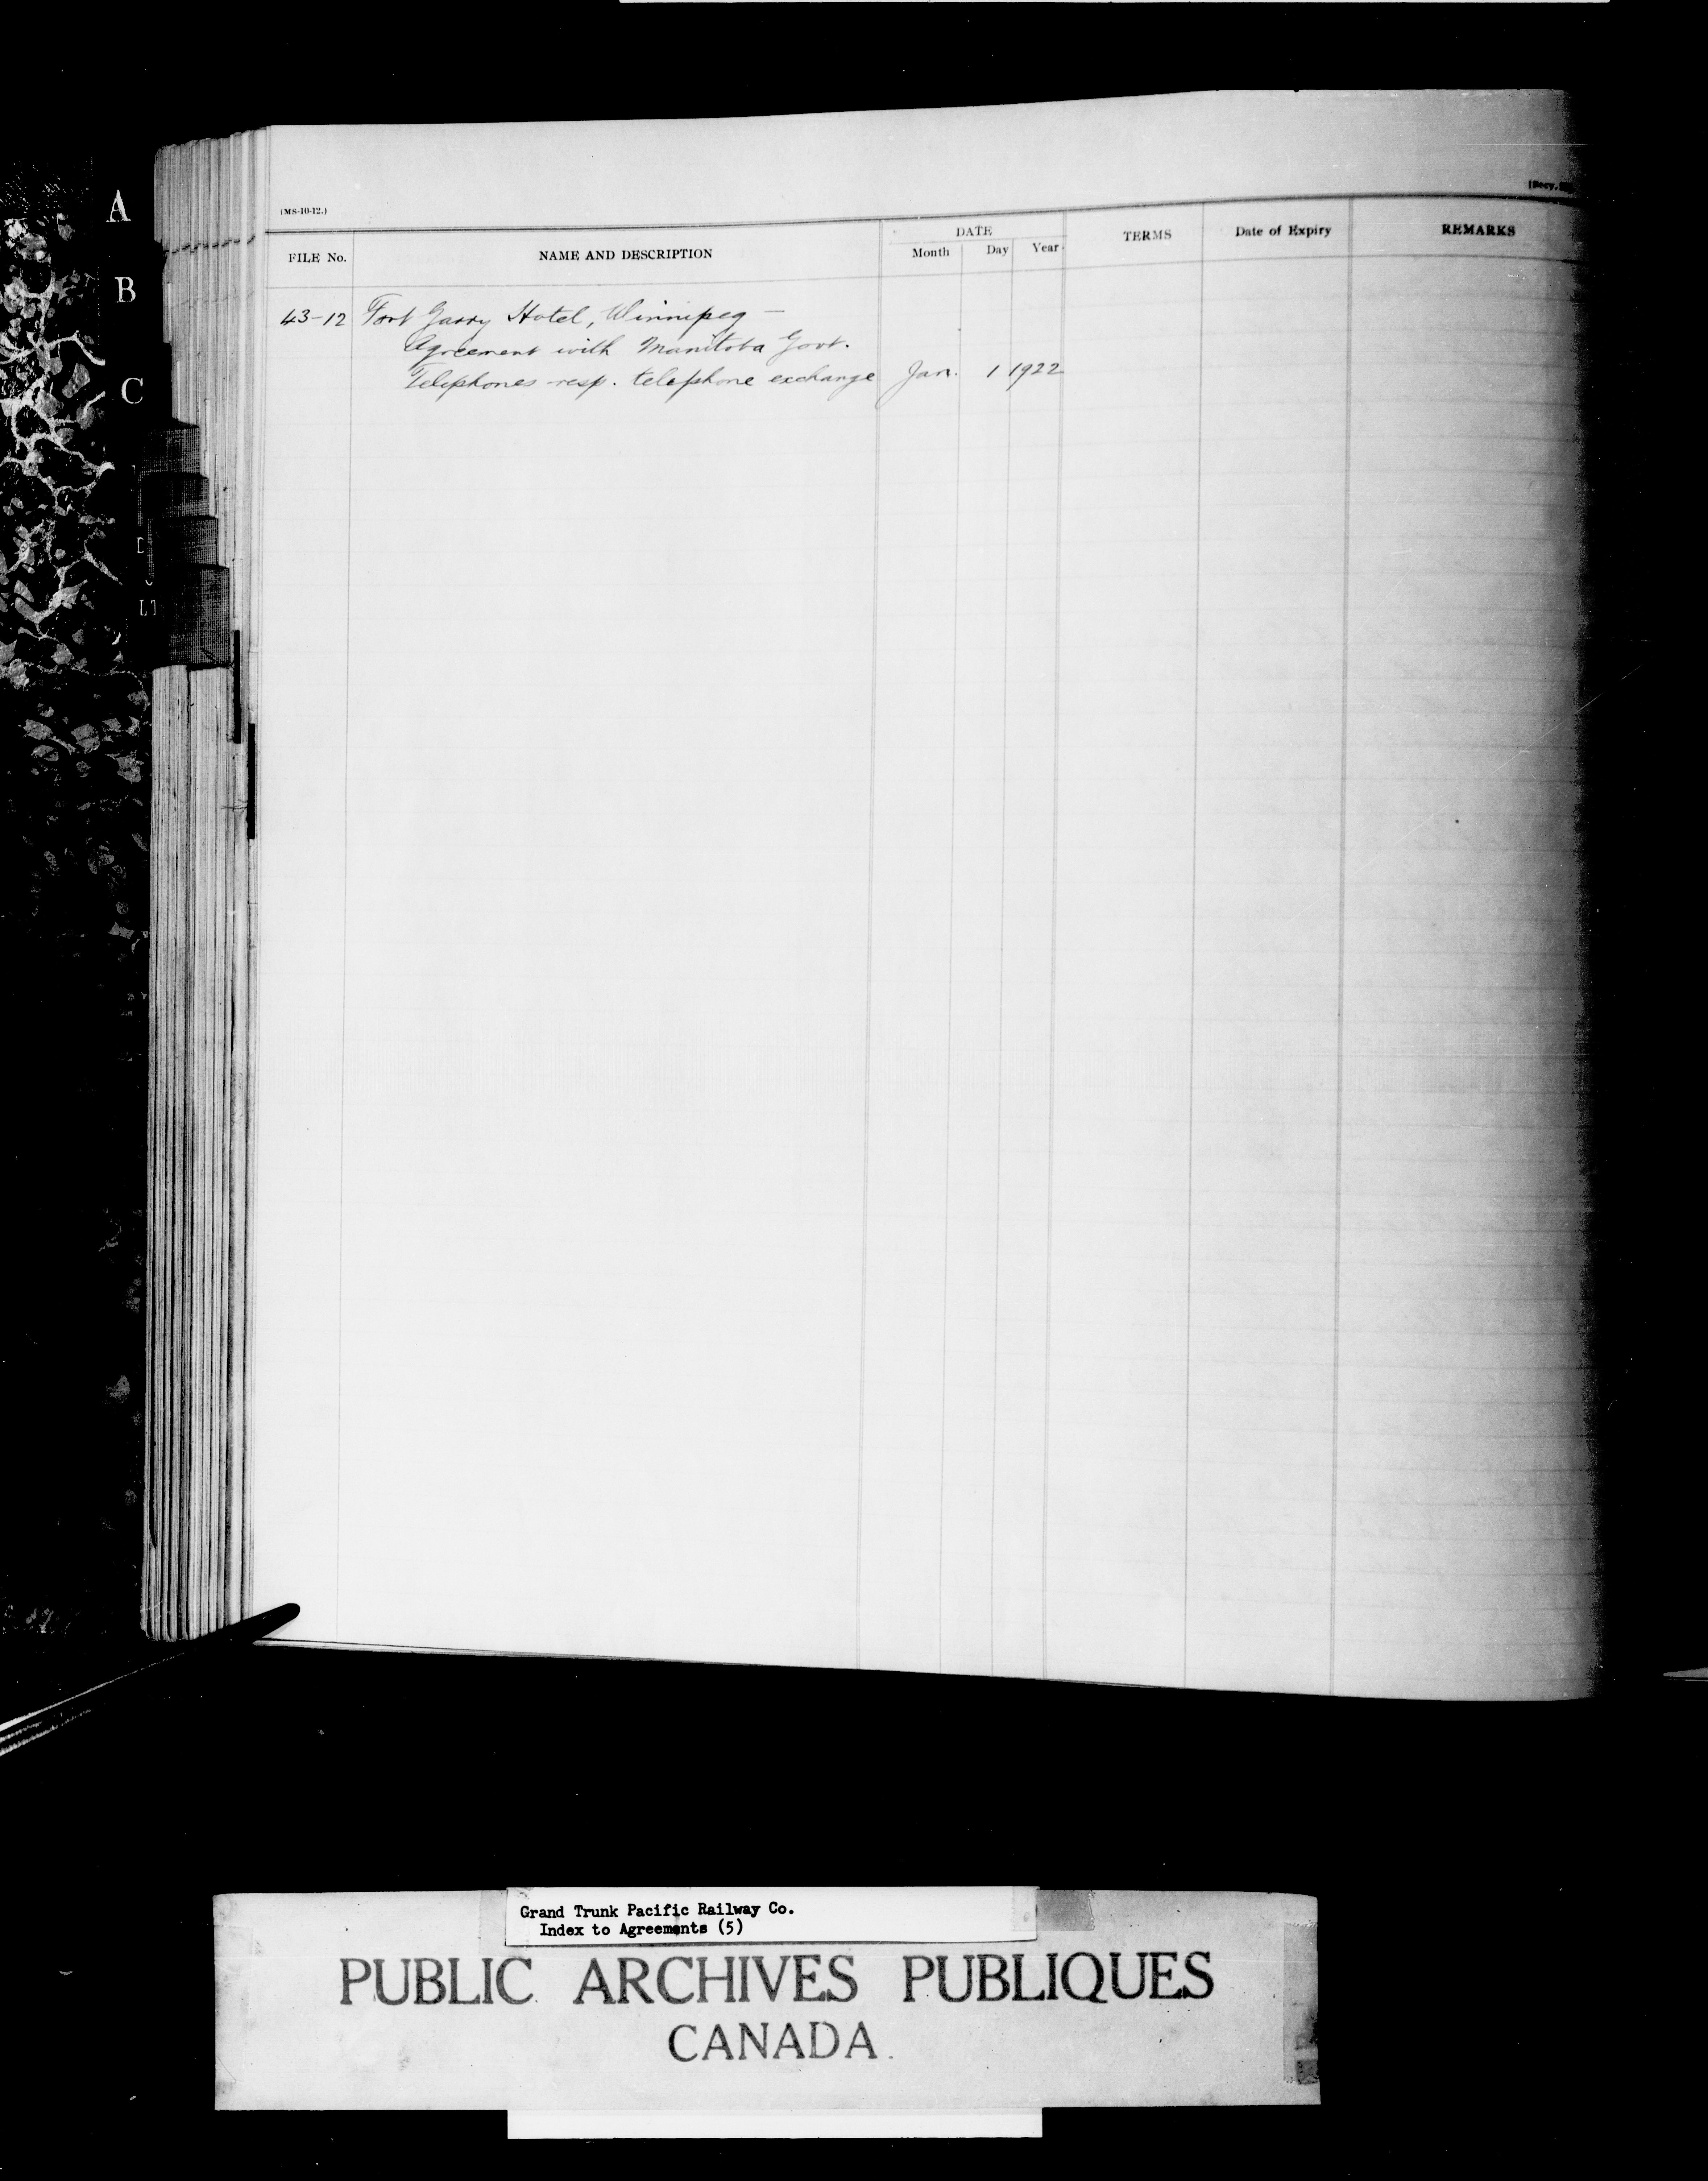 A
B
C
(MS-10-12.)
FILE No. NAME AND DESCRIPTION DATE Month Day Year TERMS Date of Expiry REMARKS
43-12 Fort Garry Hotel, Winnipeg —
Agreement with Manitoba Govt.
Telephones resp. telephone exchange Jan. 1 1922
Grand Trunk Pacific Railway Co.
Index to Agreements (5)
PUBLIC ARCHIVES PUBLIQUES
CANADA.